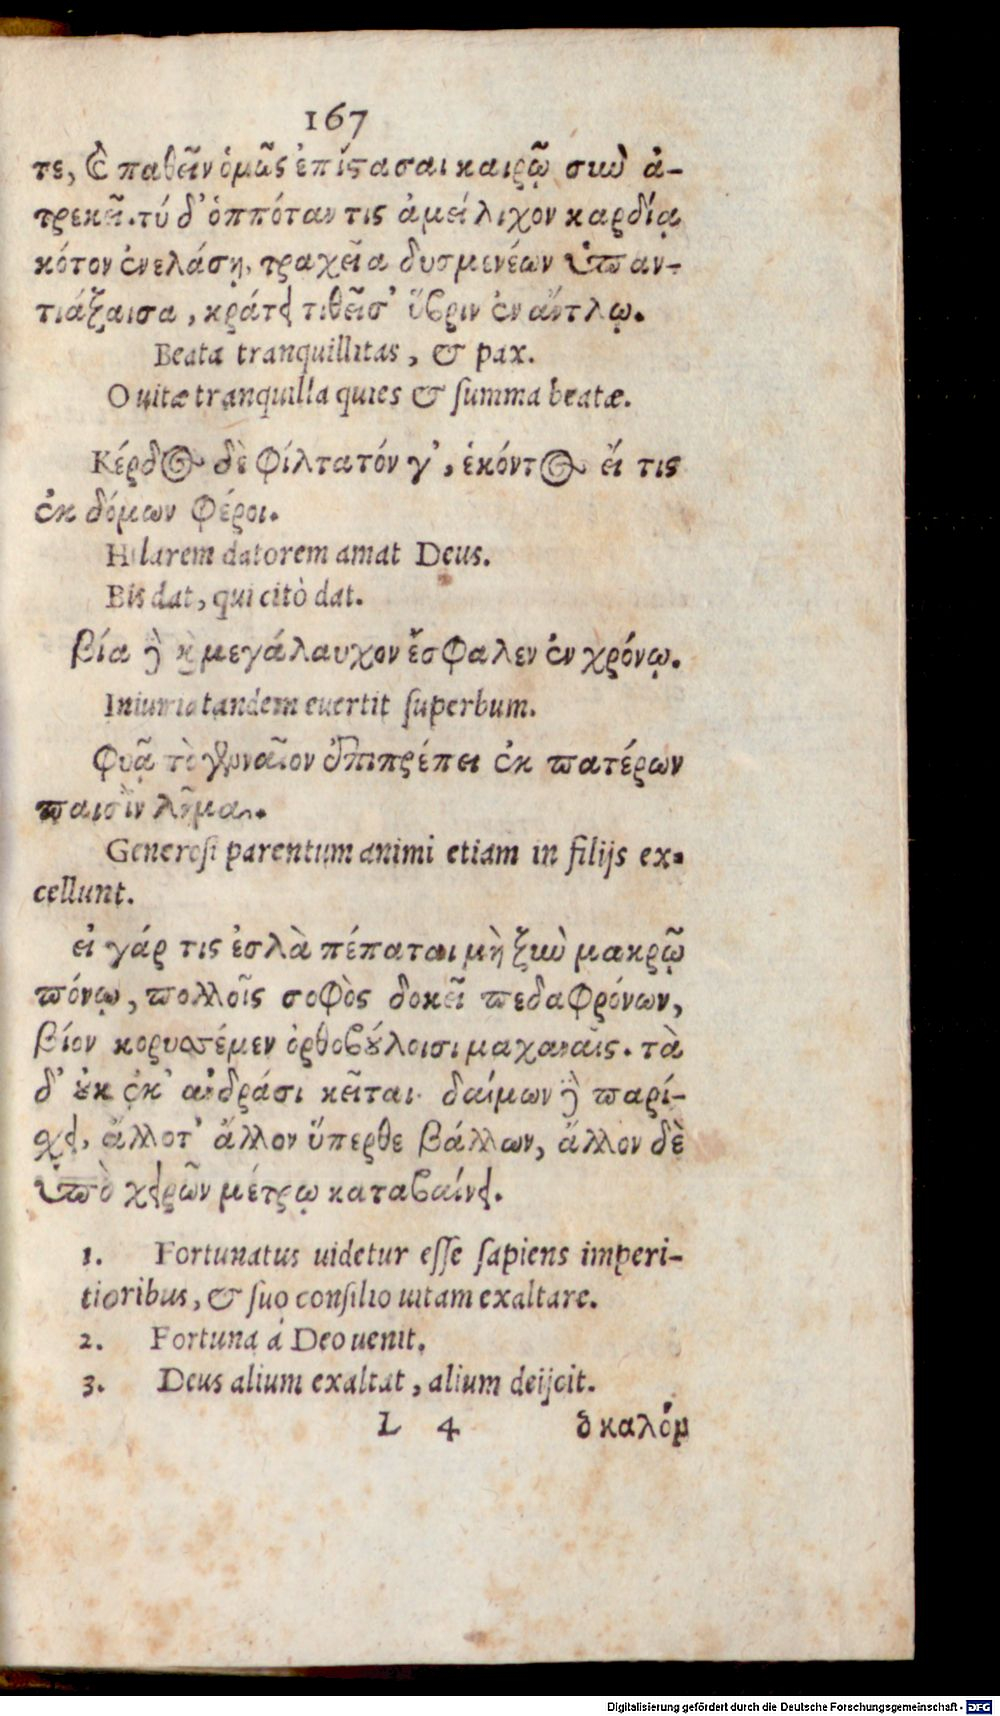 167
τε, ϗ παθεῖν ὁμῶς ἐπίϛασαι καιρῷ σιωὺ ἀ-
τρεκεῖ. τύ δ' ὁππόταν τις ἀμείλιχον καρδίᾳ
κότον ἐνελάσῃ, τραχεῖα δυσμενέων ὑπαν-
τιάξαισα, κράτει τιθεῖσ' ὕβριν ἐν ἄντλῳ.
Beata tranquillitas, & pax.
O uitæ tranquilla quies & ſumma beatæ.
Κέρδος δὲ φίλτατόν γ', ἑκόντος εἴ τις
ἐκ δόμων φέροι.
Hilarem datorem amat Deus.
Bis dat, qui citò dat.
βία ἢ κὶ μεγάλαυχον ἔσφαλεν ἐν χρόνῳ.
Iniuria tandem euertit ſuperbum.
Φυᾷ τὸ γενναῖον ἐπιπρέπει ἐκ πατέρων
παισὶν λῆμα.
Generoſi parentum animi etiam in filijs ex-
cellunt.
εἰ γάρ τις ἐσλὰ πέπαται μὴ ξιωὺ μακρῷ
πόνῳ, πολλοῖς σοφὸς δοκεῖ πεδαφρόνων,
βίον κορυσσέμεν ὀρθοβούλοισι μαχαναῖς. τὰ
δ' οὐκ ἐκ' ἀνδράσι κεῖται. δαίμων ἢ παρί-
σχει, ἄλλοτ' ἄλλον ὕπερθε βάλλων, ἄλλον δὲ
ὑπὸ χειρῶν μέτρῳ καταβαίνει.
1. Fortunatus uidetur eſſe ſapiens imperi-
tioribus, & ſuo conſilio uitam exaltare.
2. Fortuna à Deo uenit.
3. Deus alium exaltat, alium deijcit.
L 4 δ καλόμ
Digitalisierung gefördert durch die Deutsche Forschungsgemeinschaft - DFG